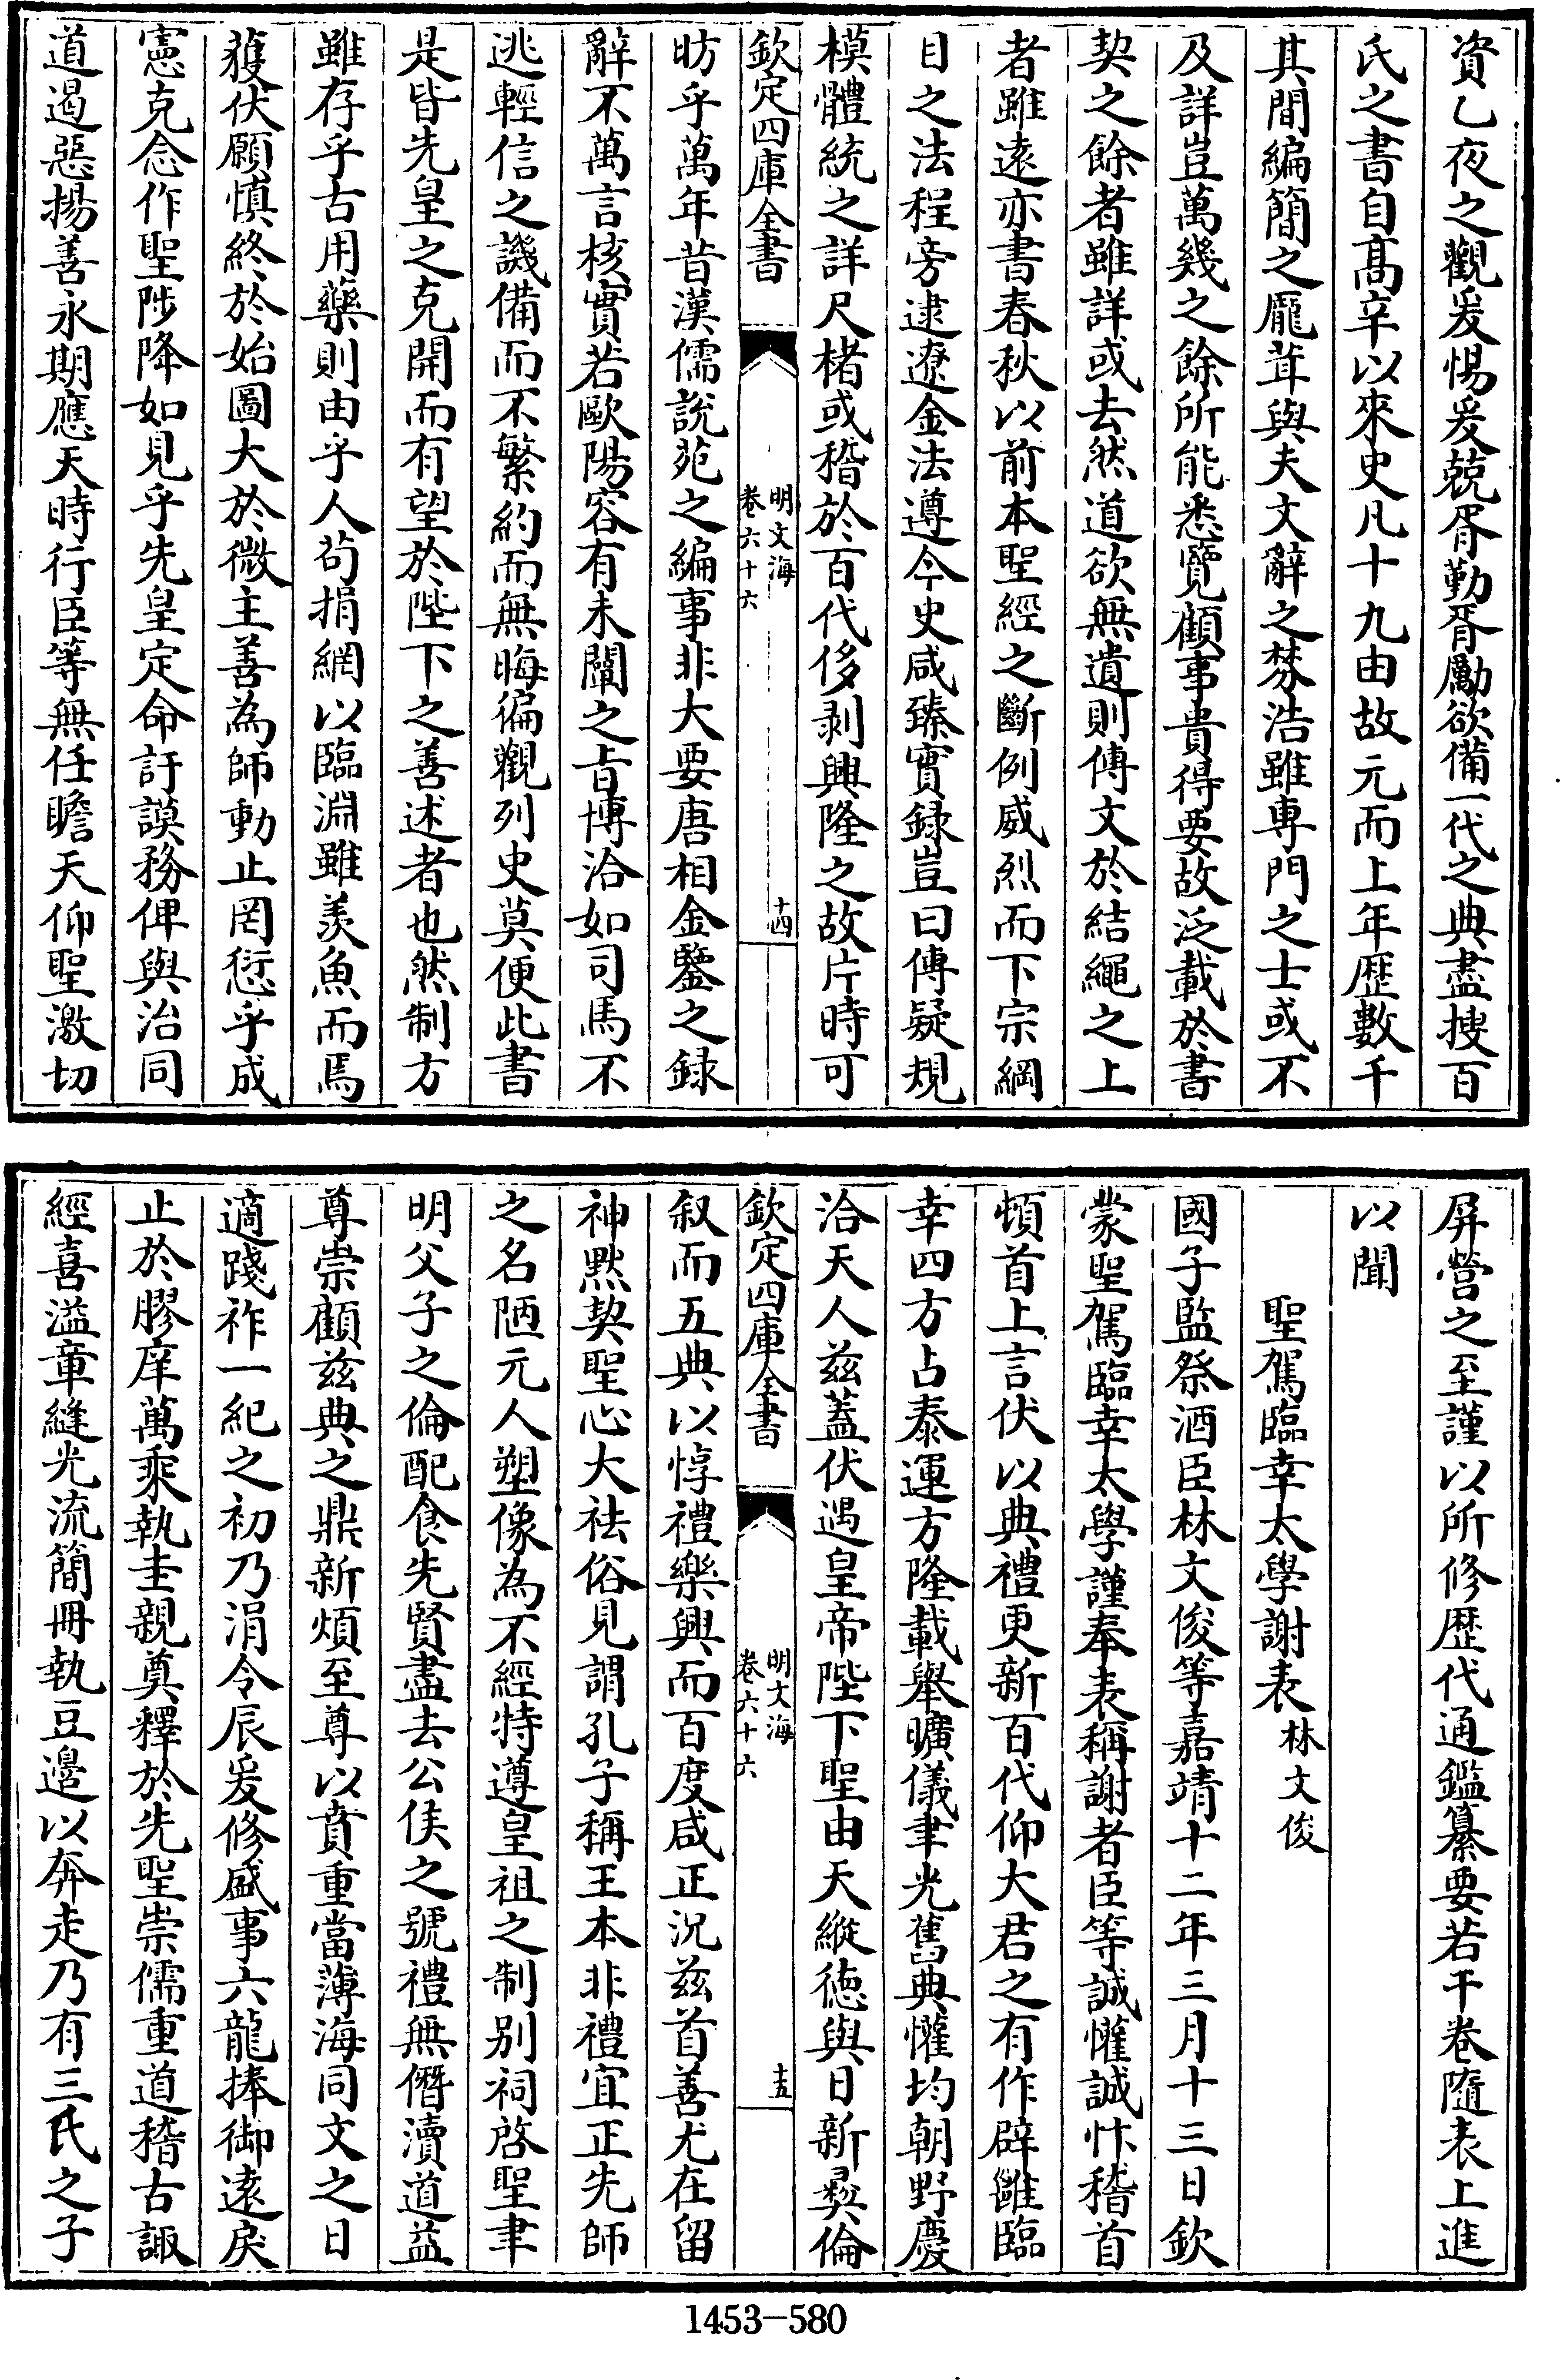 資乙夜之觀爰惕爰兢胥勤胥勵欲備一代之典盡搜百
氏之書自髙辛以來史凡十九由故元而上年歷數千
其間編簡之龎茸與夫文辭之棼浩雖専門之士或不
及詳豈萬幾之餘所能悉覽顧事貴得要故泛載於書
契之餘者雖詳或去然道欲無遺則傳文於結繩之上
者雖逺亦書春秋以前本聖經之斷例威烈而下宗綱
目之法程旁逮遼金法遵今史咸臻實録豈曰傳疑規
模體統之詳尺楮或稽於百代侈剥興隆之故片時可
欽定四庫全書
明文海
卷六十六
十四
昉乎萬年昔漢儒説苑之編事非大要唐相金鑒之録
辭不萬言核實若歐陽容有未闡之㫖博洽如司馬不
逃輕信之譏備而不繁約而無晦徧觀列史莫便此書
是皆先皇之克開而有望於陛下之善述者也然制方
雖存乎古用藥則由乎人苟捐網以臨淵雖羨魚而焉
獲伏願慎終於始圖大於微主善為師動止罔愆乎成
憲克念作聖陟降如見乎先皇定命訏謨務俾與治同
道遏惡揚善永期應天時行臣等無任瞻天仰聖激切
屏營之至謹以所修歴代通鑑纂要若干卷隨表上進
以聞
聖駕臨幸太學謝表 林文俊
國子監祭酒臣林文俊等嘉靖十二年三月十三日欽
蒙聖駕臨幸太學謹奉表稱謝者臣等誠懽誠忭稽首
頓首上言伏以典禮更新百代仰大君之有作辟雝臨
幸四方占泰運方隆載舉曠儀聿光舊典懽均朝野慶
洽天人兹蓋伏遇皇帝陛下聖由天縱徳與日新彛倫
欽定四庫全書
明文海
卷六十六
十五
叙而五典以惇禮樂興而百度咸正況兹首善尤在留
神黙契聖心大祛俗見謂孔子稱王本非禮宜正先師
之名陋元人塑像為不經特遵皇祖之制别祠啓聖聿
明父子之倫配食先賢盡去公侯之號禮無僭瀆道益
尊崇顧兹典之鼎新煩至尊以賁重當薄海同文之日
適踐祚一紀之初乃涓令辰爰修盛事六龍捧御逺戾
止於膠庠萬乘執圭親奠釋於先聖崇儒重道稽古諏
經喜溢章縫光流簡冊執豆邉以奔走乃有三氏之子
1453-580